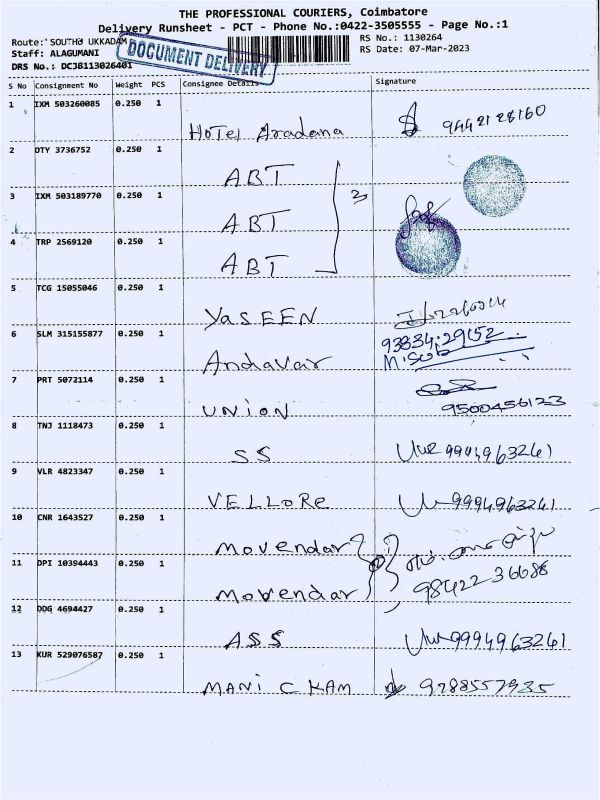 THE PROFESSIONAL COURIERS, Coimbatore
Delivery Runsheet - PCT - Phone No.:0422-3505555 - Page No.:1
Route: SOUTH UKKADAM
RS No.: 1130264
Staff: ALAGUMANI
RS Date: 07-Mar-2023
DRS No.: DCJB113026401
DOCUMENT DELIVERY
S No Consignment No Weight PCS Consignee Details Signature
1 IXM 503260085 0.250 1
Hotel Aradana 9442128160
2 DTY 3736752 0.250 1
ABT
3 IXM 503189770 0.250 1
ABT 3
4 TRP 2569120 0.250 1
ABT
5 TCG 15055046 0.250 1
YaSEEN
6 SLM 315155877 0.250 1
Andavar 93834 29152
7 PRT 5072114 0.250 1
UNION 9500456123
8 TNJ 1118473 0.250 1
SS 9994963261
9 VLR 4823347 0.250 1
VELLORe 9994963261
10 CNR 1643527 0.250 1
Movendar
11 DPI 10394443 0.250 1
Movendar 98422 36688
12 DDG 4694427 0.250 1
ASS 9994963261
13 KUR 529076587 0.250 1
MANICKAM 9788557935